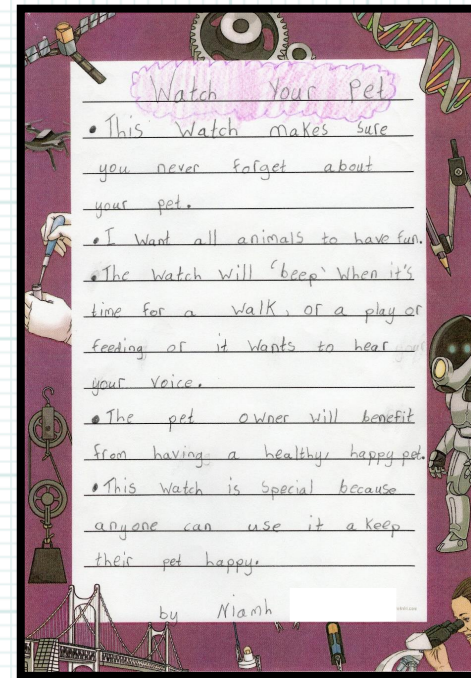 Watch Your Pet
• This Watch makes sure
you never forget about
your pet.
• I want all animals to have fun.
• The watch will 'beep' when it's
time for a walk, or a play or
feeding or it wants to hear your
your voice.
• The pet owner will benefit
from having a healthy, happy pet.
• This watch is special because
anyone can use it a keep
their pet happy.
by Niamh